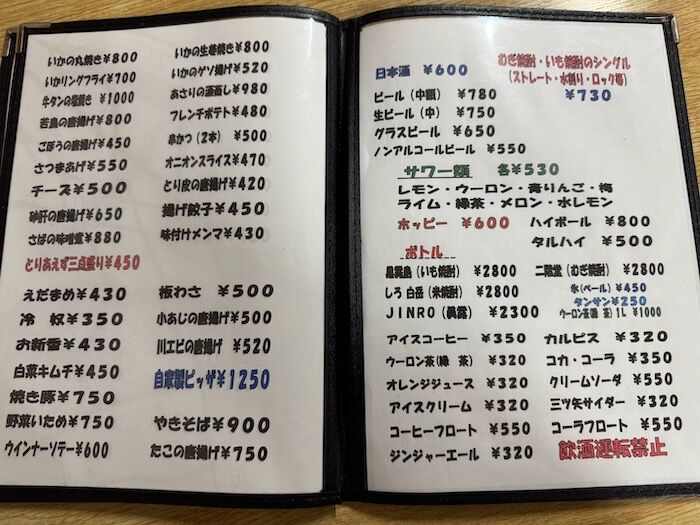 いかの丸焼き¥800
いかリングフライ¥700
牛タンの塩焼き ¥1000
若鳥の唐揚げ¥800
ごぼうの唐揚げ¥450
さつまあげ¥550
チーズ¥500
砂肝の唐揚げ¥650
さばの味噌煮¥880
とりあえず三点盛り¥450
えだまめ¥430
冷 奴¥350
お新香¥430
白菜キムチ¥450
焼き豚¥750
野菜いため¥750
ウインナーソテー¥600
いかの生姜焼き¥800
いかのゲソ揚げ¥520
あさりの酒蒸し¥980
フレンチポテト¥480
串かつ(2本) ¥500
オニオンスライス¥470
とり皮の唐揚げ¥420
揚げ餃子¥450
味付けメンマ¥430
板わさ ¥500
小あじの唐揚げ¥500
川エビの唐揚げ ¥520
自家製ピッザ¥1250
やきそば¥900
たこの唐揚げ¥750
日本酒 ¥600
むぎ焼酎・いも焼酎のシングル
(ストレート・水割り・ロック等)
¥730
ビール(中瓶) ¥780
生ビール(中) ¥750
グラスビール ¥650
ノンアルコールビール ¥550
サワー類 各¥530
レモン・ウーロン・青りんご・梅
ライム・緑茶・メロン・水レモン
ホッピー ¥600 ハイボール ¥800
タルハイ ¥500
ボトル
黒霧島(いも焼酎) ¥2800 二階堂(むぎ焼酎) ¥2800
しろ 白岳(米焼酎) ¥2800 氷(ペール)¥450
タンサン¥250
JINRO(眞露) ¥2300 ウーロン茶(緑 茶) 1L ¥1000
アイスコーヒー ¥350 カルピス ¥320
ウーロン茶(緑 茶) ¥320 コカ・コーラ ¥350
オレンジジュース ¥320 クリームソーダ ¥550
アイスクリーム ¥320 三ツ矢サイダー ¥320
コーヒーフロート ¥550 コーラフロート ¥550
ジンジャーエール ¥320 飲酒運転禁止